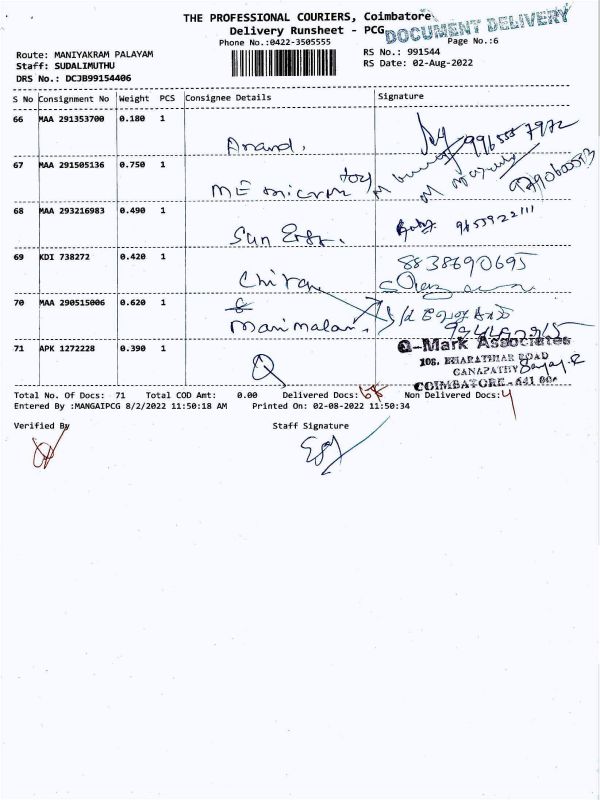 THE PROFESSIONAL COURIERS, Coimbatore
Delivery Runsheet - PCG
DOCUMENT DELIVERY
Phone No.:0422-3505555
Page No.:6
Route: MANIYAKRAM PALAYAM
RS No.: 991544
Staff: SUDALIMUTHU
RS Date: 02-Aug-2022
DRS No.: DCJB99154406
S No Consignment No Weight PCS Consignee Details Signature
66 MAA 291353700 0.180 1
Anand.
67 MAA 291505136 0.750 1
ME micron
68 MAA 293216983 0.490 1
Sun Engr.
9655922111
69 KDI 738272 0.420 1
8838690695
Chitra
70 MAA 290515006 0.620 1
&
Manimalar.
71 APK 1272228 0.390 1
Q
Q-Mark Associates
108, BHARATHIAR ROAD
GANAPATHY
COIMBATORE - 641 006
Total No. Of Docs: 71 Total COD Amt: 0.00 Delivered Docs: 68 Non Delivered Docs: 4
Entered By :MANGAIPCG 8/2/2022 11:50:18 AM Printed On: 02-08-2022 11:50:34
Verified By
Staff Signature